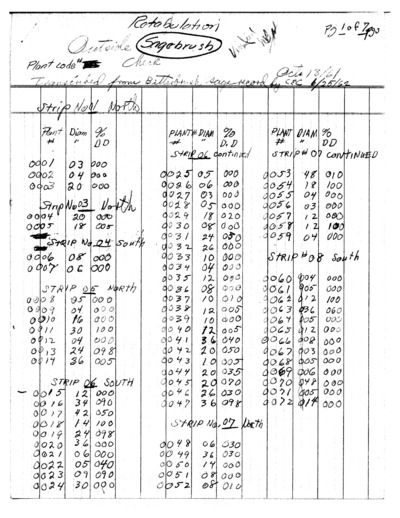 Retabulation
Outside Sagebrush
Check
Pg 1 of 7 pgs
Plant code #
Oct. 13/61
Transcribed from Bitterbrush Sage record by CPC 6/25/62
Strip No 01 North
Plant # Diam " % DD
0001 03 000
0002 04 000
0003 20 000
Strip No 03 North
0004 20 000
0005 18 005
STRIP No. 04 South
0006 08 000
0007 06 000
STRIP 05 North
0008 05 000
0009 04 000
0010 16 000
0011 30 100
0012 04 000
0013 24 098
0014 36 005
STRIP 06 SOUTH
0015 12 000
0016 34 090
0017 42 050
0018 14 100
0019 24 098
0020 36 000
0021 06 000
0022 05 040
0023 09 090
0024 30 000
PLANT # DIAM " % D.D
STRIP 06 continued
0025 05 000
0026 06 000
0027 03 000
0028 05 000
0029 18 020
0030 08 000
0031 24 050
0032 26 000
0033 10 000
0034 04 000
0035 12 000
0036 08 000
0037 10 010
0038 12 005
0039 10 000
0040 12 005
0041 36 040
0042 20 050
0043 10 005
0044 20 035
0045 20 070
0046 26 030
0047 36 098
STRIP No. 07 North
0048 06 030
0049 36 030
0050 14 000
0051 08 000
0052 08 010
PLANT # DIAM " % DD
STRIP # 07 CONTINUED
0053 48 010
0054 18 100
0055 04 000
0056 03 000
0057 12 000
0058 12 100
0059 04 000
STRIP # 08 South
0060 004 000
0061 005 000
0062 012 100
0063 036 060
0064 005 000
0065 012 000
0066 008 000
0067 003 000
0068 005 000
0069 006 000
0070 048 000
0071 005 000
0072 014 000